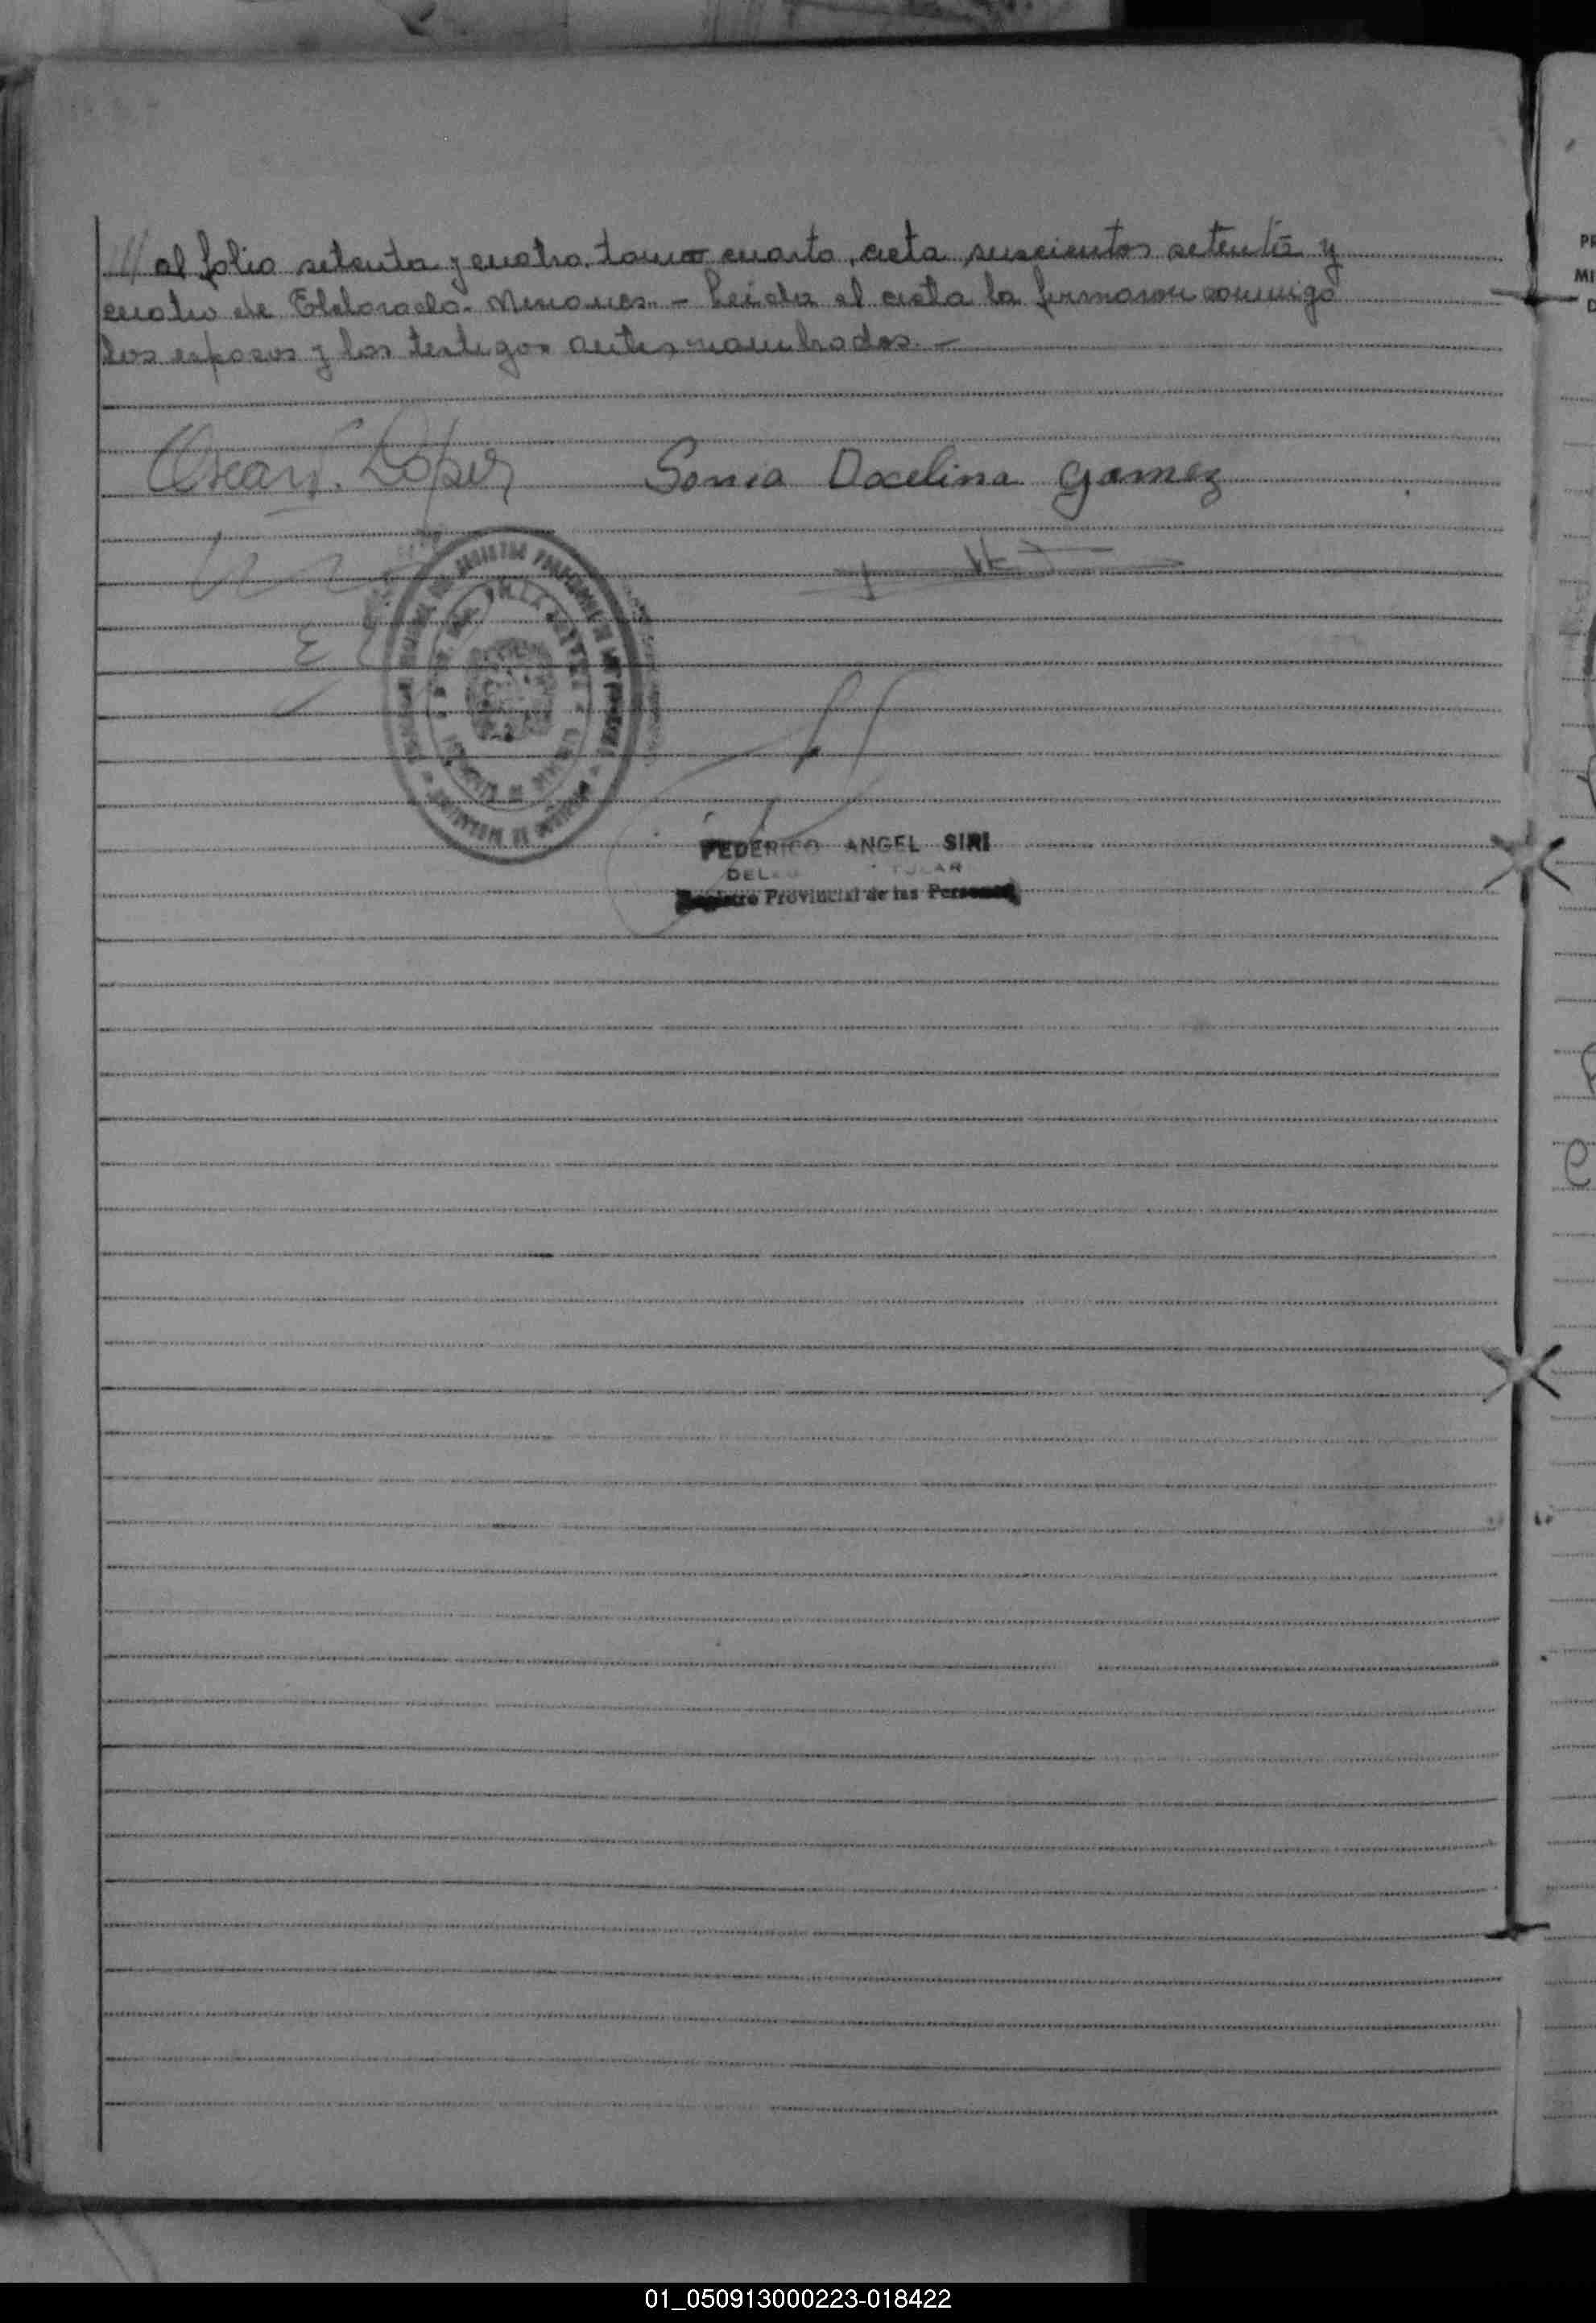 /// al folio setenta y cuatro, tomo cuarto, acta seiscientos setenta y
cuatro de Eldorado - Misiones. - Leída el acta la firmaron conmigo
los esposos y los testigos antes nombrados. -
Oscar López Sonia Docelina Gomez
FEDERICO ANGEL SIRI
Registro Provincial de las Personas
PR
MI
D
01_050913000223-018422